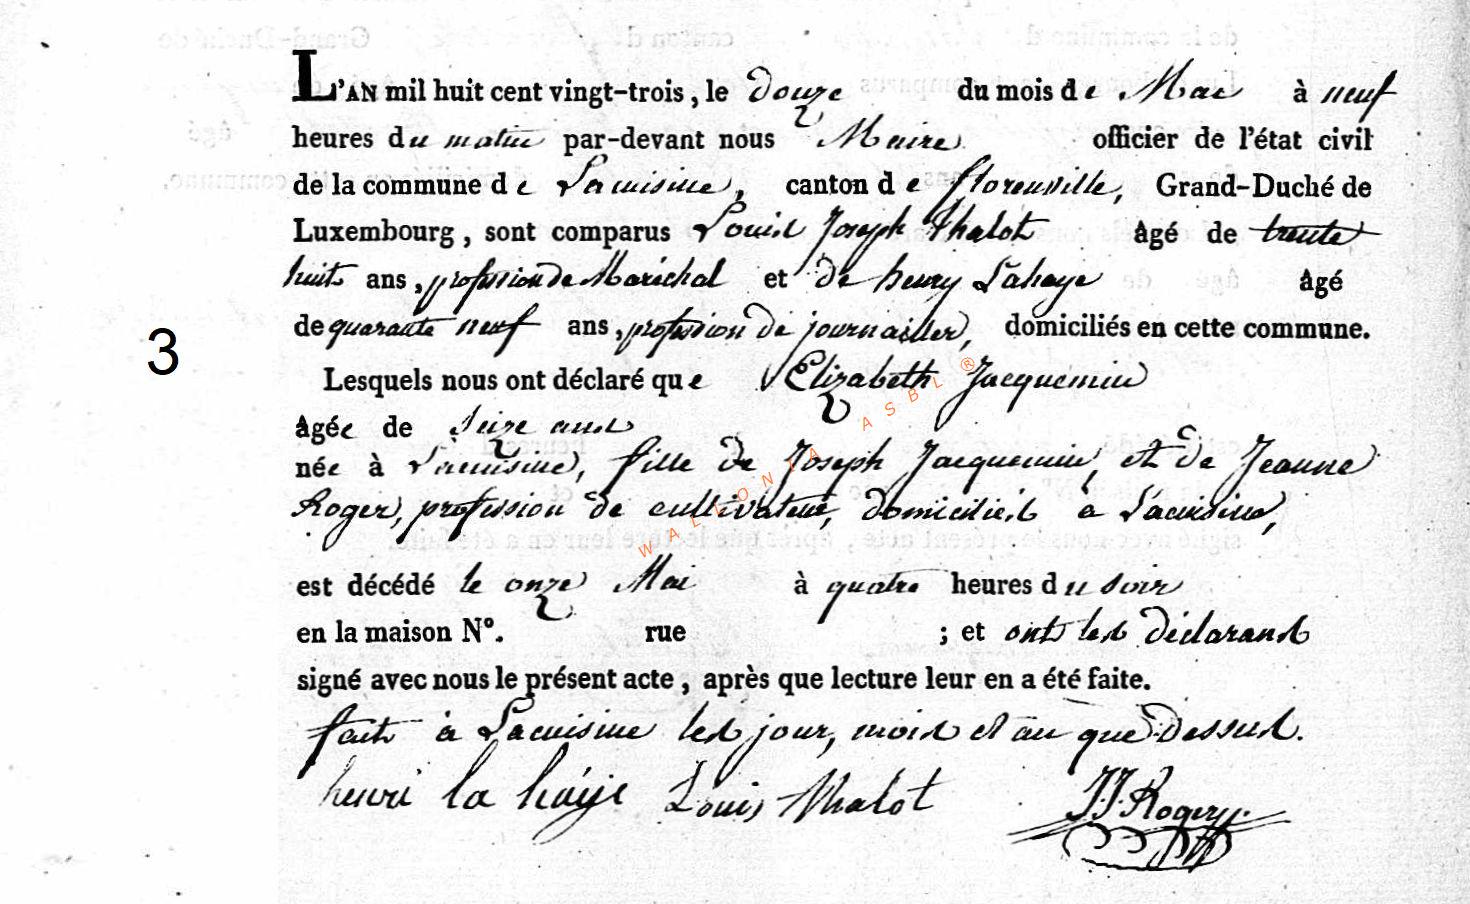 L'AN mil huit cent vingt-trois, le douze du mois de Mai à neuf
heures du matin par-devant nous Maire officier de l'état civil
de la commune de Lacuisine, canton de florenville, Grand-Duché de
Luxembourg, sont comparus Louis Joseph Thalot âgé de trente
huit ans, profession de Maréchal et de henry Lahaye âgé
de quarante neuf ans, profession de journailler, domiciliés en cette commune.
3
Lesquels nous ont déclaré que Elizabeth Jacquemin
âgée de Seize ans
née à Lacuisine, fille de Joseph Jacquemin, et de Jeanne
Roger, profession de cultivateur, domiciliés à Lacuisine,
est décédé le onze Mai à quatre heures du soir
en la maison N°. rue ; et ont les déclarans
signé avec nous le présent acte, après que lecture leur en a été faite.
fait à Lacuisine les jour, mois et an que dessus.
henri la haÿe Louis Thalot J.J. Roger
WALLONIA ASBL ®